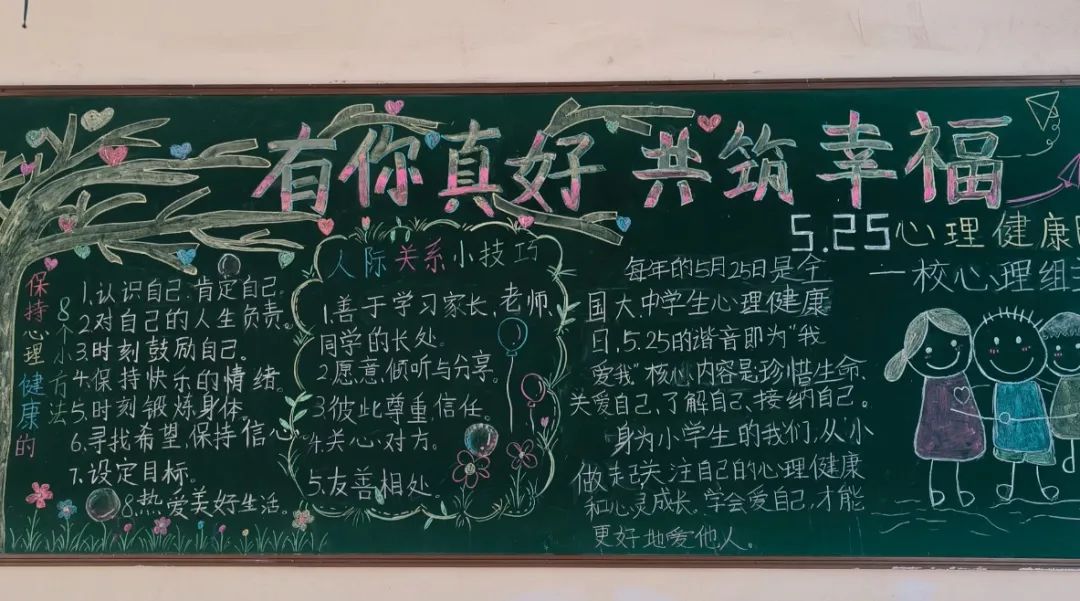 有你真好 共筑幸福
5.25心理健康
一校心理组
保持心理健康的
8个小方法
1.认识自己,肯定自己。
2.对自己的人生负责。
3.时刻鼓励自己。
4.保持快乐的情绪。
5.时刻锻炼身体。
6.寻找希望,保持信心
7.设定目标。
8.热爱美好生活。
人际关系小技巧
1.善于学习家长,老师,
同学的长处。
2.愿意倾听与分享。
3.彼此尊重,信任。
4.关心对方。
5.友善相处。
每年的5月25日是全
国大、中学生心理健康
日,5.25的谐音即为“我
爱我”。核心内容是珍惜生命、
关爱自己、了解自己、接纳自己。
身为小学生的我们,从小
做起关注自己的心理健康
和心灵成长。学会爱自己,才能
更好地爱他人。